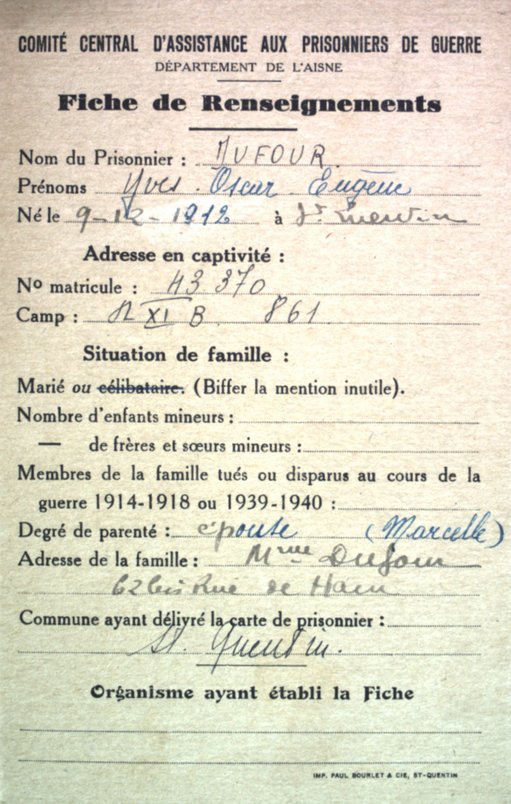 COMITÉ CENTRAL D'ASSISTANCE AUX PRISONNIERS DE GUERRE
DÉPARTEMENT DE L'AISNE
Fiche de Renseignements
Nom du Prisonnier : DUFOUR
Prénoms Yves Oscar Eugène
Né le 9-12-1912 à St Quentin
Adresse en captivité :
No matricule : 43 370
Camp : XI B 861
Situation de famille :
Marié ou célibataire. (Biffer la mention inutile).
Nombre d'enfants mineurs :
— de frères et sœurs mineurs :
Membres de la famille tués ou disparus au cours de la
guerre 1914-1918 ou 1939-1940 :
Degré de parenté : épouse (Marcelle)
Adresse de la famille : Mme Dufour
62 bis Rue de Ham
Commune ayant délivré la carte de prisonnier :
St. Quentin.
Organisme ayant établi la Fiche
IMP. PAUL BOURLET & CIE, ST-QUENTIN